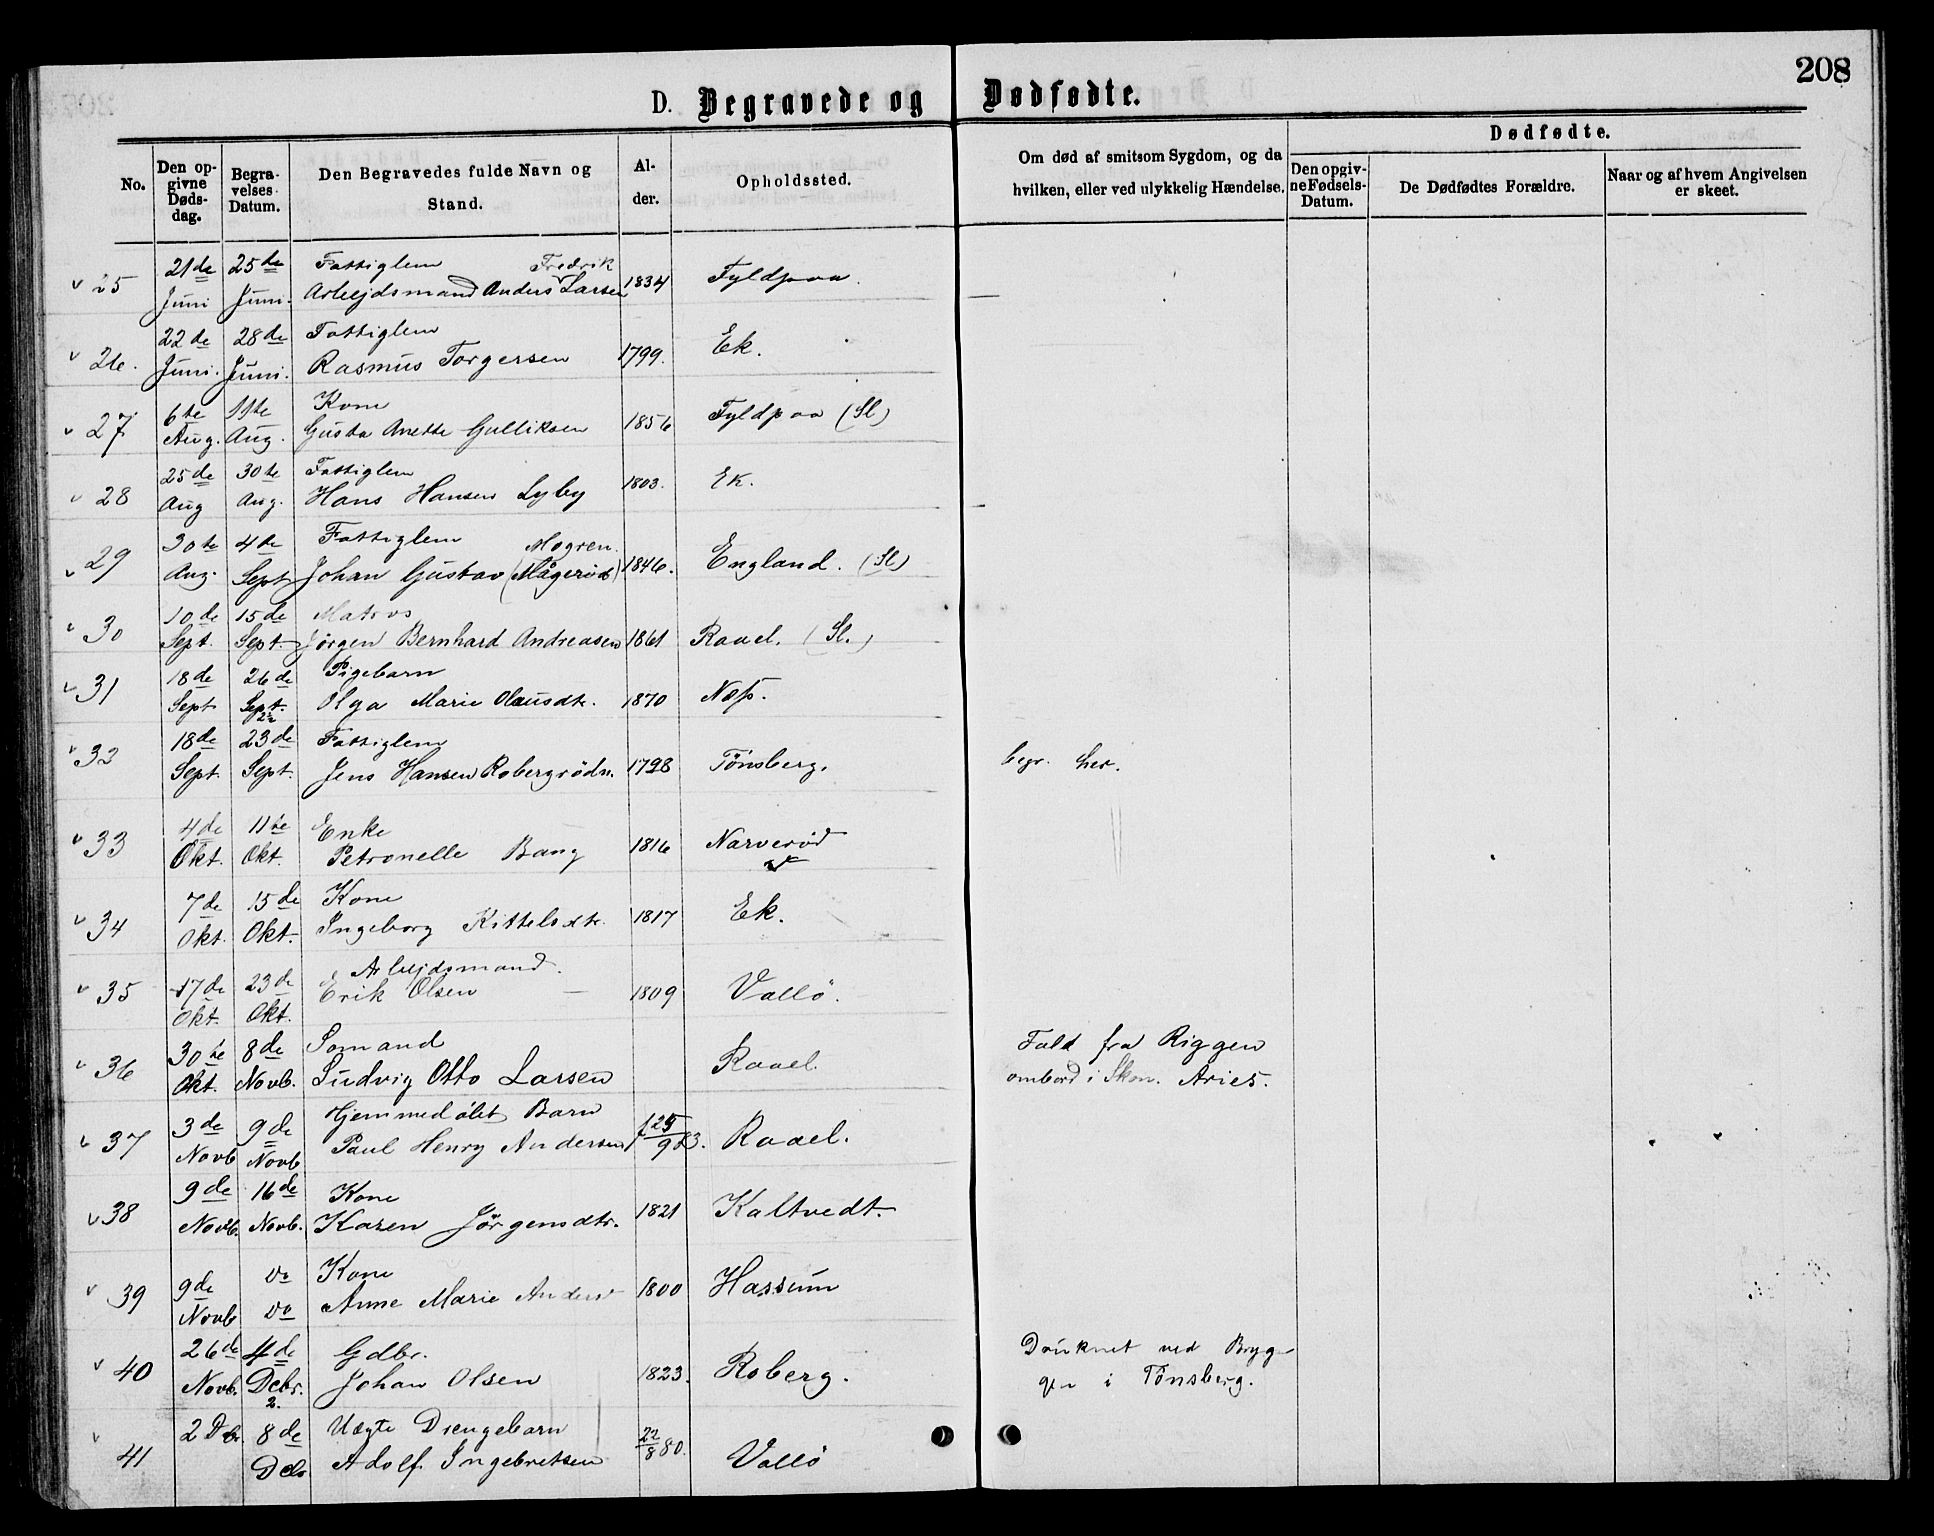 208
D. Begravede og Dødfødte.
No.
Den opgivne Dødsdag.
Begravelses Datum.
Den Begravedes fulde Navn og Stand.
Alder.
Opholdssted.
Om død af smitsom Sygdom, og da hvilken, eller ved ulykkelig Hændelse.
Dødfødte.
Den opgivne Fødsels-Datum.
De Dødfødtes Forældre.
Naar og af hvem Angivelsen er skeet.
v 25 21de Juni 25te Juni. Fattiglem Arbejdsmand Anders Fredrik Larsen 1834 Fyldpaa. —
v 26. 22de Juni. 28de Juni. Fattiglem Rasmus Torgersen 1799. Ek.
v 27 6te Aug. 11te Aug. Kone Gusta Anette Gulliksen 1856 Fyldpaa (Sl)
v 28 25de Aug 30te Aug. Fattiglem Hans Hansen Lyby 1803. Ek. -
v 29 30te Aug. 4de Sept Fattiglem Johan Gustav Mogren. (Mågeröd) 1846. England. (Sl)
v 30 10de Sept. 15de Sept. Matros Jørgen Bernhard Andreasen 1861 Raael. (Sl.)
v 31 18de Sept 26de Sept. 22 Pigebarn Olga Marie Olausdtr. 1870 Næss.
v 32 18de Sept. 23de Sept. Fattiglem Jens Hansen Robergrödn. 1798 Tönsberg. begr. her.
v 33 4de Okt. 11te Okt. Enke Petronelle Bang 1816 Narveröd
v 34 7de Okt. 15de Okt. Kone Ingeborg Kittelsdtr. 1817 Ek.
v 35 17de Okt. 23de Okt. Arbejdsmand. Erik Olsen — 1809 Vallö.
v 36 30te Okt. 8de Novb. Sömand Ludvig Otto Larsen Raael. Fald fra Riggen ombord i Skon. Aries.
v 37 3de Novb 9de Novb Hjemmedöbt Barn Paul Henry Andersen f 25/9 83. Raael.
v 38 9de Novb. 16de Novb. Kone Karen Jörgensdtr. 1821 Kaltvedt.
v 39 9de Novb Do Do Kone Anne Marie Andersd 1800 Hassum
v 40 26de Novb. 4de Debr. 2. Gdbr. Johan Olsen 1823. Roberg. Druknet ved Bryggen i Tönsberg.
v 41 2 Dbr. 8de Debr Uægte Drengebarn Adolf Ingebretsen 22/8 80. Vallö